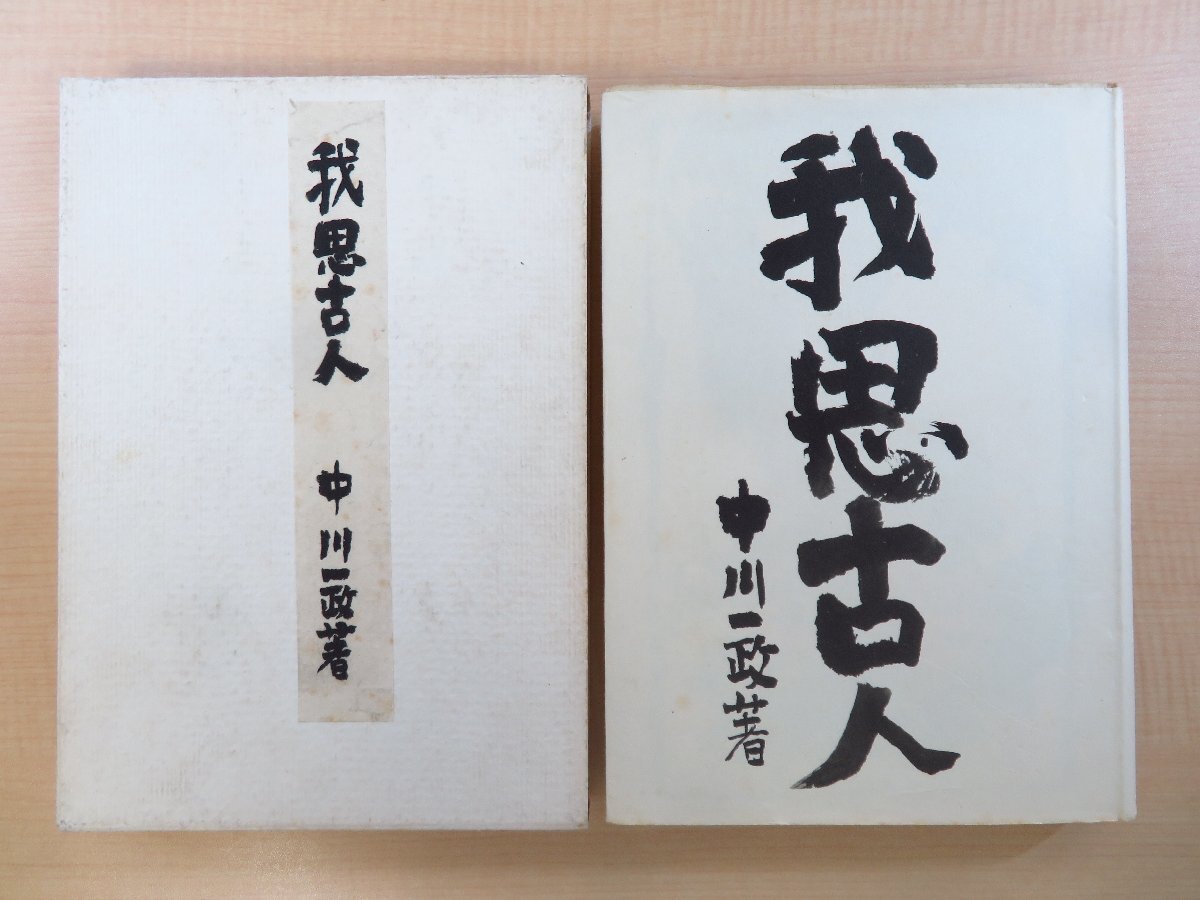 我思古人
中川一政著
我思古人
中川一政著